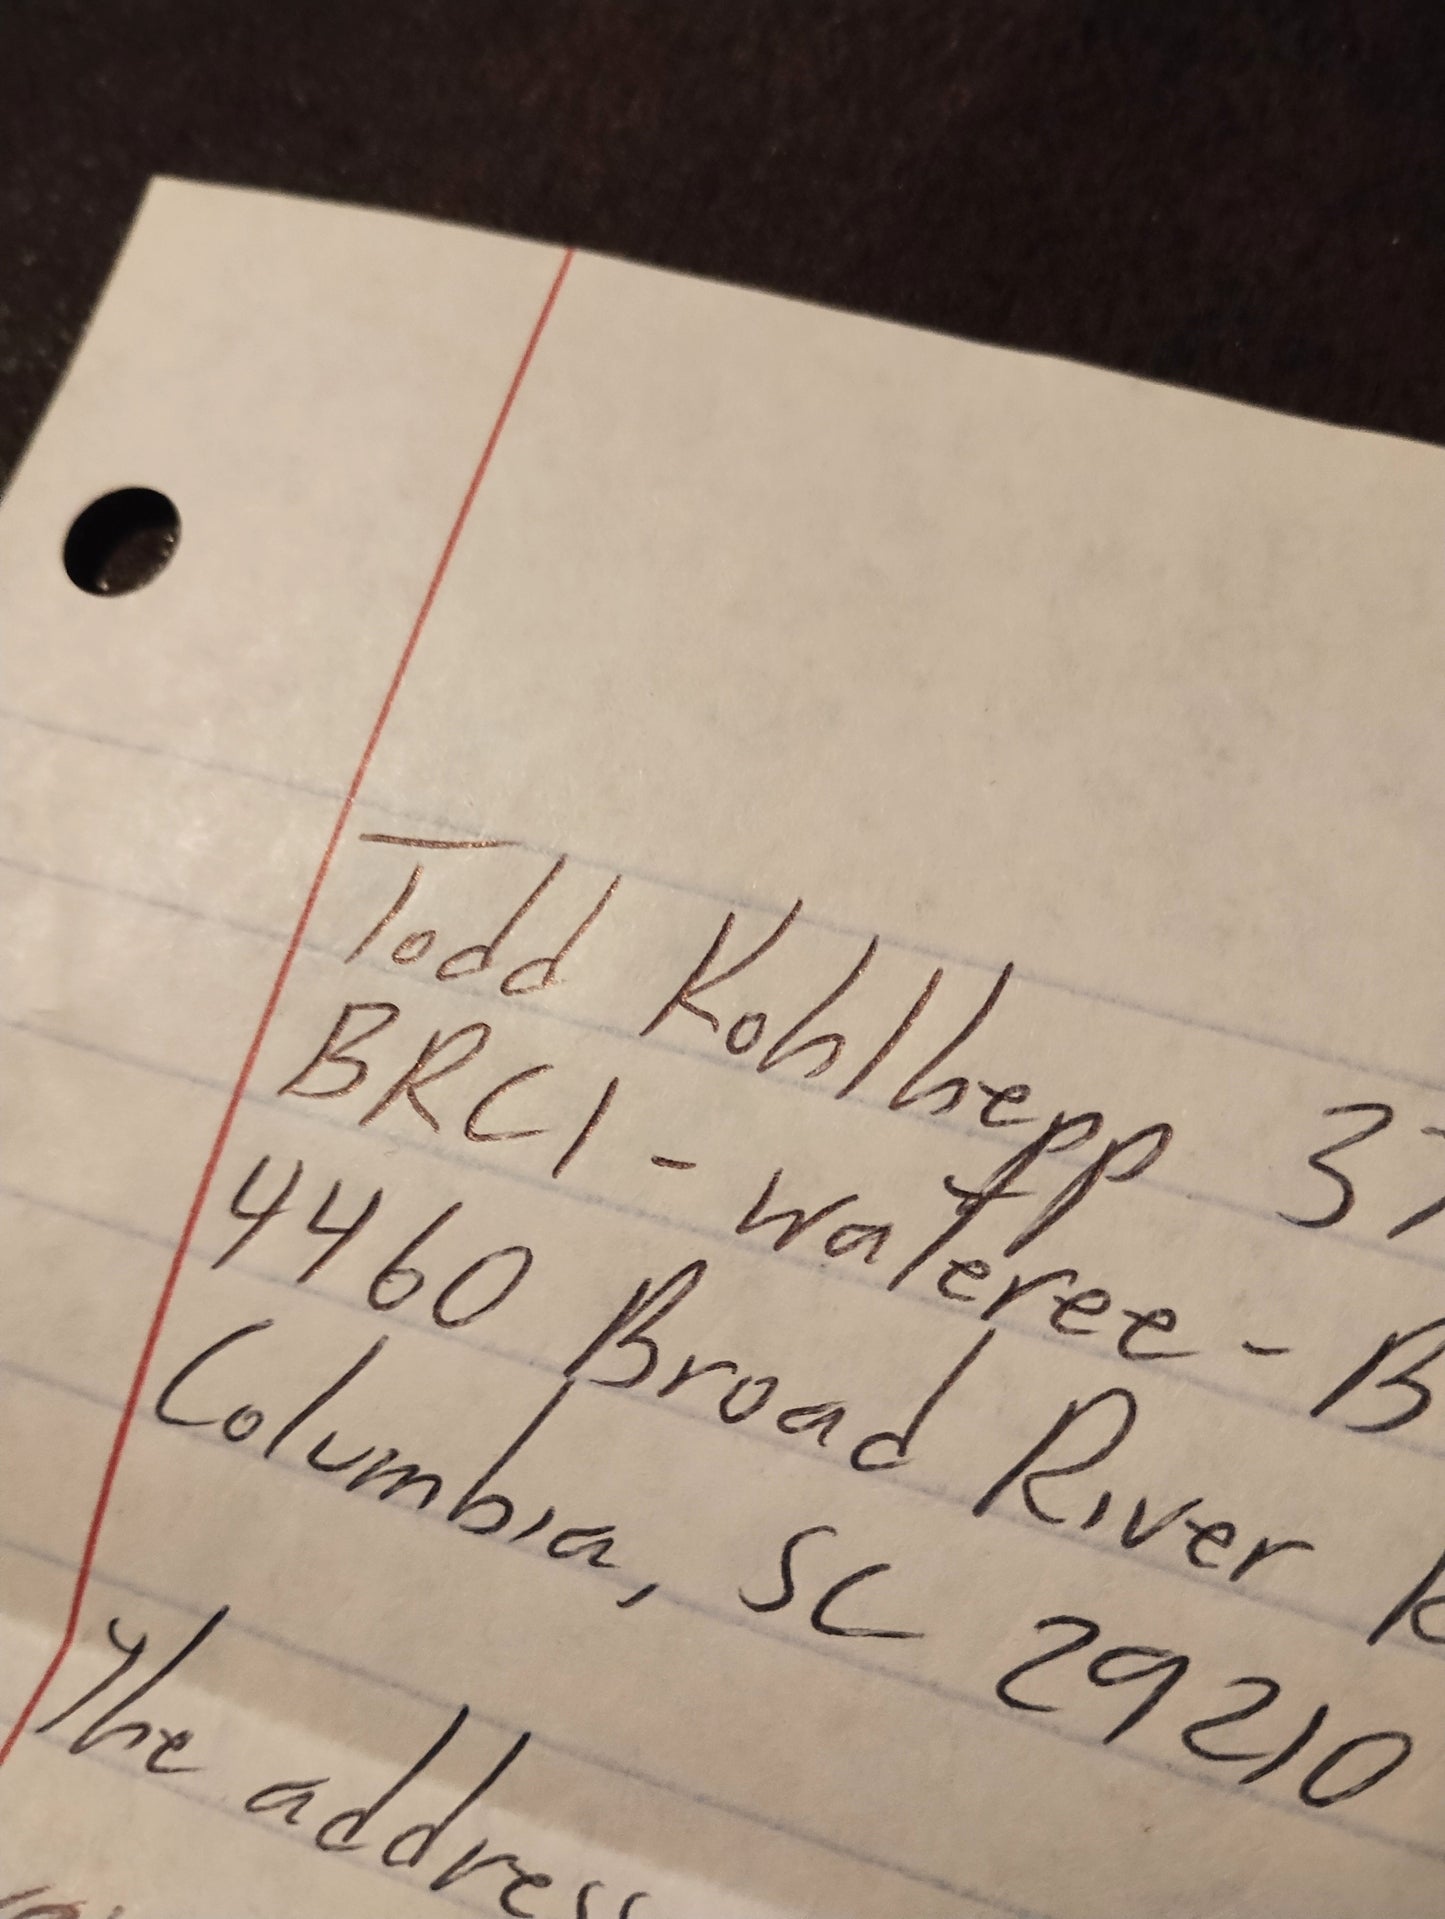 Todd Kohlhepp 37
BRCI - Wateree - B
4460 Broad River R
Columbia, SC 29210
The address